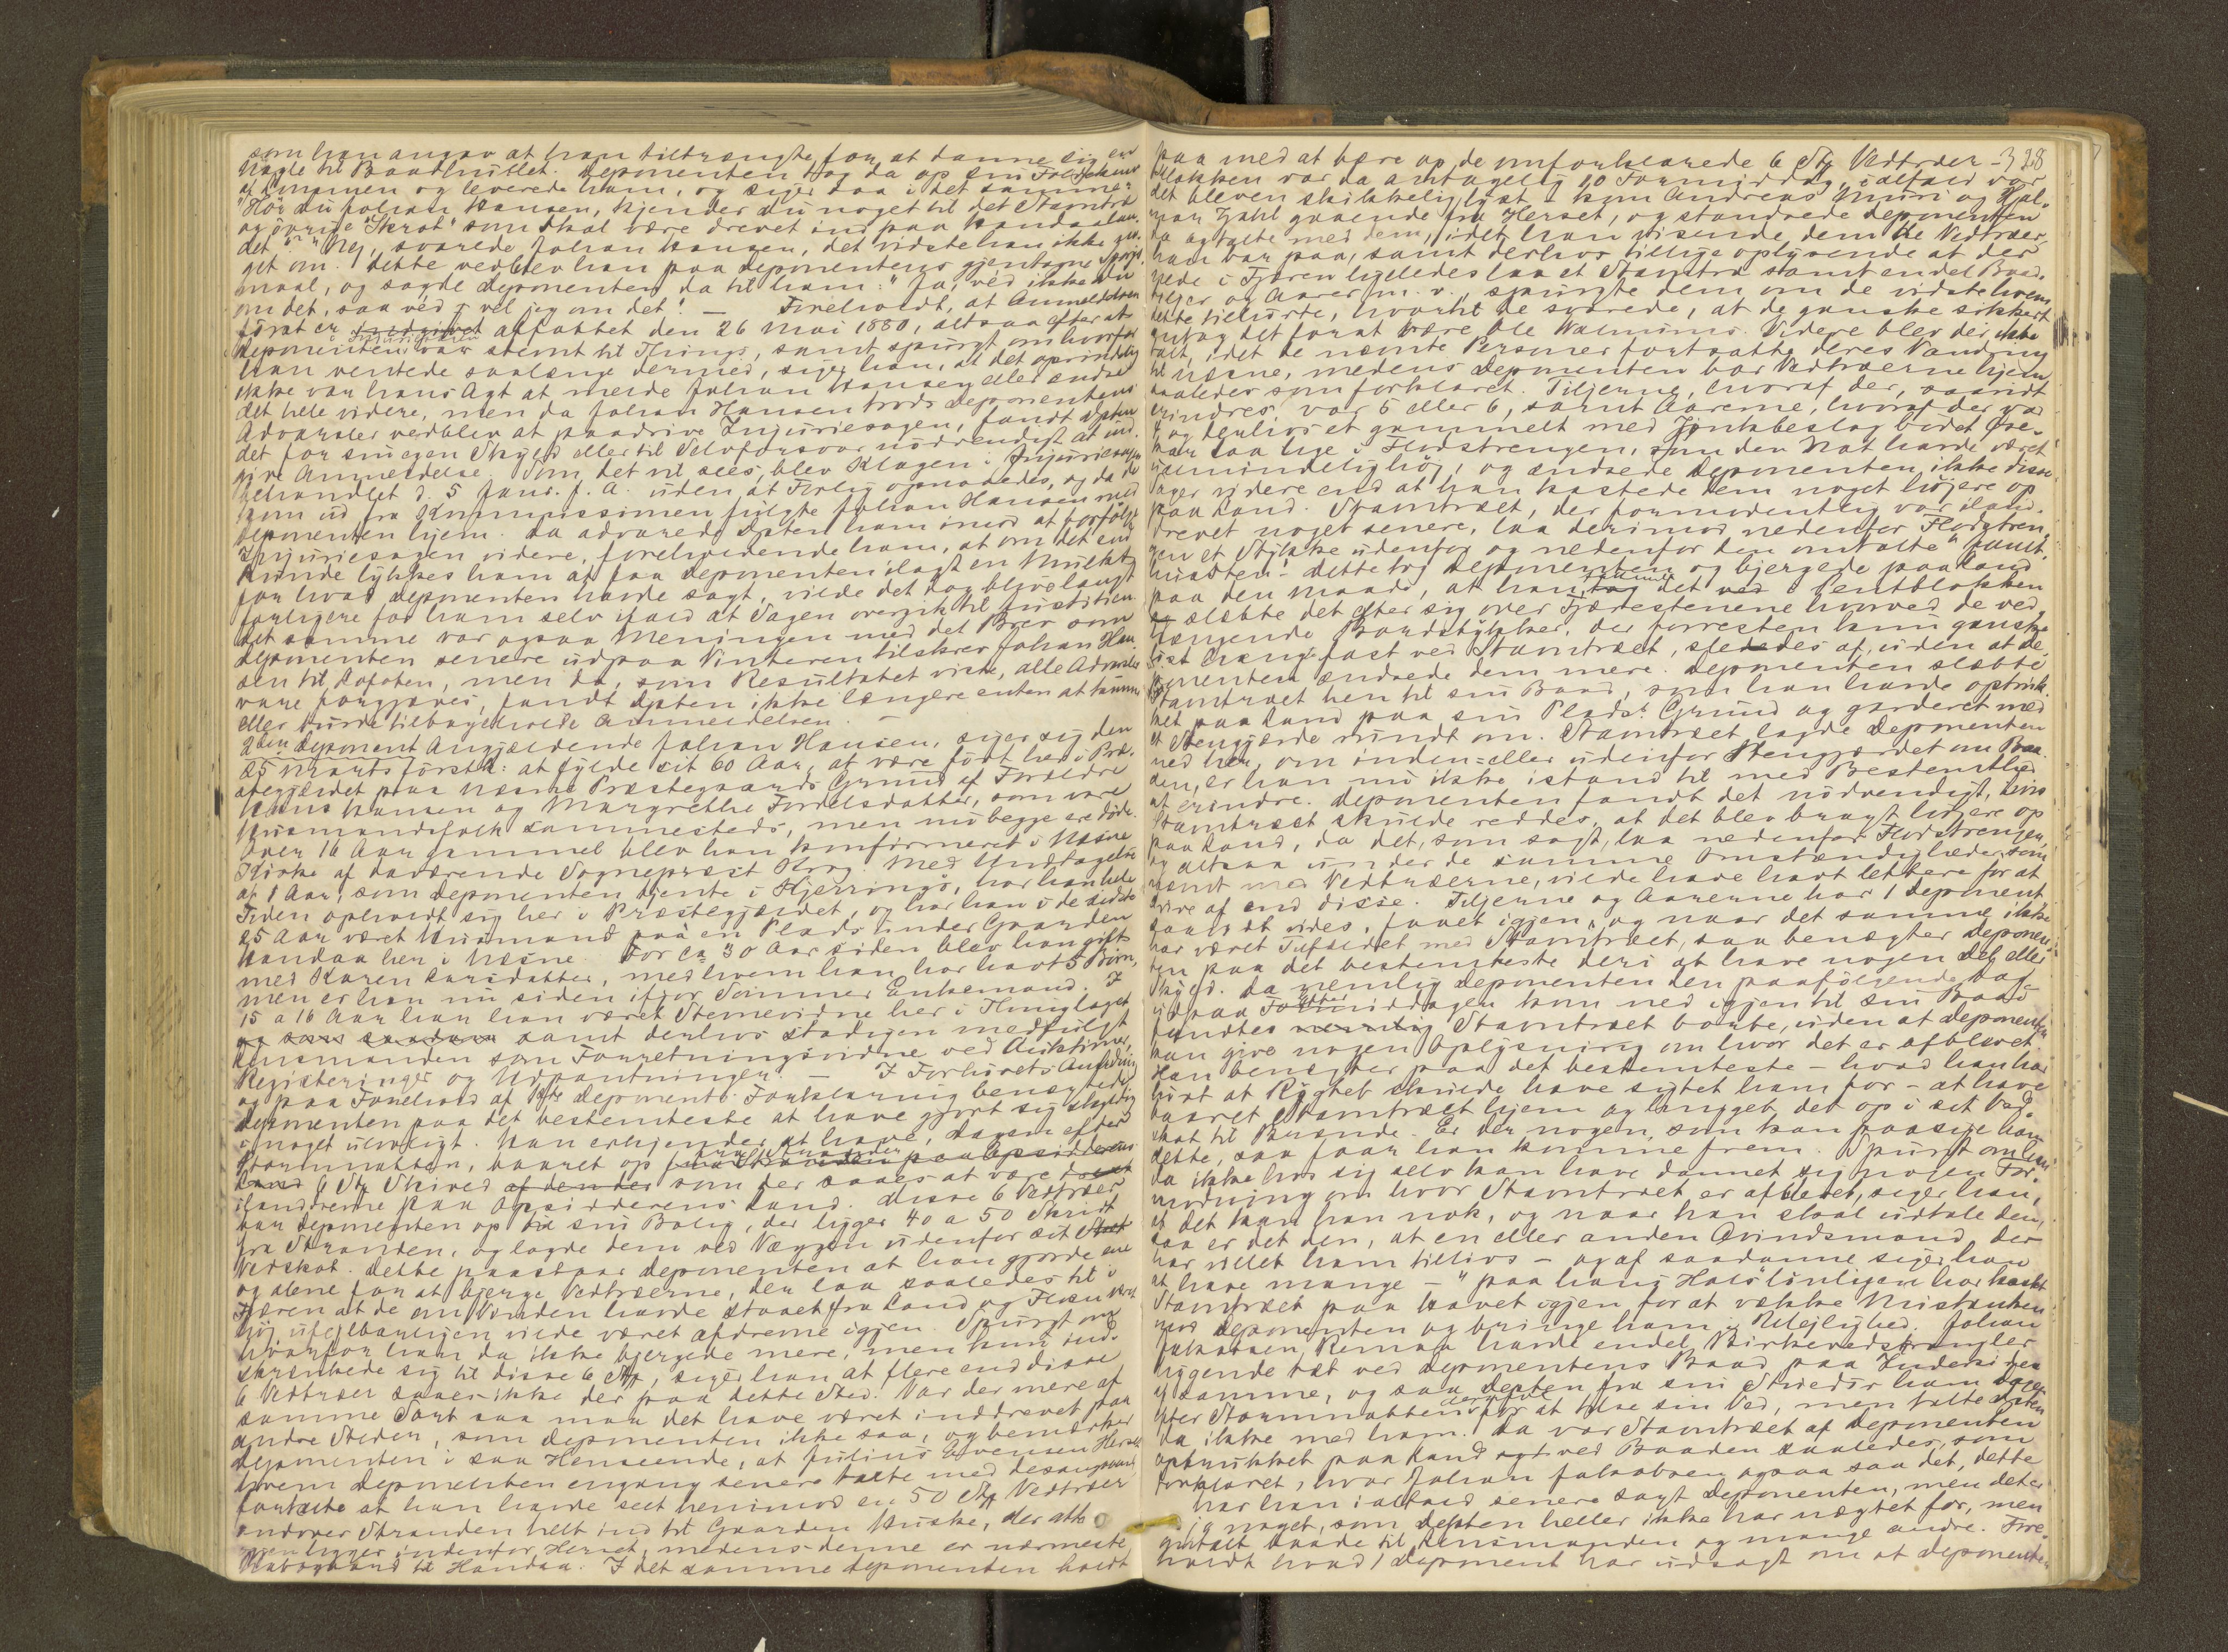 som han angav at han tiltrængte for at danne sig en
Nøgle til Baadhullet. Deponenten tog da op sin
af Lommen og leverede ham, og siger saa i det samme:
"Hør du Johan Hansen, kjender du noget til det Stavntræ
og øvrige "Skrot" som skal være drevet ind paa Handaaslan-
det"? "Nej, svarede Johan Hansen, det vidste han ikke no-
get om. Dette vedblev han paa Deponentens gjentagne Spørgs-
maal, og sagde Deponenten da til ham: "Ja, véd ikke du
om det, saa véd vel jeg om det! — Foreholdt, at Anmeldelsen
først er indgivet affattet den 26 Mai 1880, altsaa efter at
Deponenten i Injuriesagen var stemt til Things, samt spurgt om hvorfor
han ventede saalænge dermed, siger han, at det oprindelig
ikke var hans Agt at melde Johan Hansen eller ændse
det hele videre, men da Johan Hansen trods Deponentens
Advarsler vedblev at paadrive Injuriesagen, fandt Dpten
det for sin egen Skyld eller til Selvforsvar nødvendigt at ind-
give Anmeldelse. Som det vil sees, blev Klagen i Injuriesagen
behandlet d. 5 Janr. f. A. uden at Forlig opnaaedes, og da de
kom ud fra Kommissionen fulgte Johan Hansen med
Deponenten hjem. Da advarede Dpten ham imod at forfølge
Injuriesagen videre, foreholdende ham, at om det end
kunde lykkes ham at faa Deponenten ilagt en Mulkt
for hvad Deponenten havde sagt, vilde det dog blive langt
farligere for ham selv ifald at Sagen overgik til Justitien.
Det samme var ogsaa Meningen med det Brev som
Deponenten senere udpaa Vinteren tilskrev Johan Han-
sen til Lofoten, men da, som Resultatet viste, alle Advarsler
vare forgjæves, fandt Dpten ikke længere enten at kunne
eller burde tilbageholde Anmeldelsen. —
2den Deponent Angjældende Johan Hansen, siger sig den
25 Marts førstk: at fylde sit 60 Aar, at være født her i Præ-
stegjældet paa Næsne Præstegaards Grund af Forældre
Hans Hansen og Margrethe Fordelsdatter, som vare
Husmandsfolk sammesteds, men nu begge ere døde.
Over 16 Aar gammel blev han konfirmeret i Næsne
Kirke af daværende Sognepræst Krog. Med Undtagelse
af 1 Aar, som Deponenten tjente i Hjerringø, har han hele
Tiden opholdt sig her i Præstegjældet, og har han i de sidste
25 Aar været Husmand paa en Plads under Gaarden
Handaa her i Næsne. For ca 30 Aar siden blev han gift
med Karen Larsdatter, med hvem han har havt 5 Børn,
men er han nu siden ifjor Sommer Enkemand. I
15 a 16 Aar har han været Stevnevidne her i Thinglaget
og som saadan samt derhos stadigen medfulgt
Lensmanden som Forretningsvidne ved Auktioner,
Registeringer og Udpantninger. — I Forhørets Anledning
og paa Forehold af 1ste Deponents Forklaring benægtede
Deponenten paa det bestemteste at have gjort sig skyldig
i noget ulovligt. Han erkjender at have, Dagen efter
Stormnatten, baaret op fra Stranden paa Opsidderens
Land 6 Stkr Skived af den der som der saaes at være drevet
ilanddrevne paa Opsidderens Land. Disse 6 Vedtræer
bar Deponenten op til sin Bolig, der ligger 40 a 50 Skridt
fra Stranden, og lagde dem ved Væggen udenfor sit Skot
Vedskot. Dette paastaar Deponenten at han gjorde ene
og alene for at bjerge Vedtræerne, der laa saaledes til i
Fjæren at de om Vinden havde staaet fra Land og Floen været
høj, ufejlbarligen vilde været afdrevne igjen. Spurgt om
hvorfor han da ikke bjergede mere, men kun ind-
skrænkede sig til disse 6 Stkr, siger han at flere end disse
6 Vedtræer saaes ikke der paa dette Sted. Var der mere af
samme Sort saa maa det have været inddrevet paa
andre Steder, som Deponenten ikke saa, og bemærker
Deponenten i saa Henseende, at Julius Evensen Herset
hvem Deponenten engang senere talte med desangaaende,
fortalte at han havde seet henimod en 50 Stkr Vedtræer
endover Stranden helt ind til Gaarden Huske, der atter
igjen ligger indenfor Herset, medens denne er nærmeste
Nabogaard til Handaa. I det samme Deponenten holdt
328
paa med at bære op de omforklarede 6 Stkr Vedtræer —
Klokken var da antagelig 10 Formiddag, ialfald var
det bleven skikkelig lyst — kom Andreas Muri og Hjal-
mar Zahl gaaende fra Herset, og standsede Deponenten
da og talte med dem, idet han visende dem de Vedtræer
han bar paa, samt derhos tillige oplysende at der
nede i Fjæren ligeledes laa et Stavntræ samt endel Baad-
tiljer og Aarer m. v., spurgte dem om de vidste hvem
dette tilhørte, hvortil de svarede, at de ganske sikkert
antog det for at være Ole Halmøens. Videre blev der ikke
talt, idet de nævnte Personer fortsatte deres Vandring
til Næsne, medens Deponenten bar Vedtræerne hjem
saaledes som forklaret. Tiljerne, hvoraf der, saavidt
erindres var 5 eller 6, samt Aarerne, hvoraf der var
4 og derhos et gammelt med Jernbeslag
laa lige i Flodstrengen, som den Nat havde været
ualmindelig høj, og ændsede Deponenten ikke disse
Sager videre end at han kastede dem noget højere op
paa Land. Stavntræet, der formodentlig var iland-
drevet noget senere, laa derimod nedenfor Flodstren-
gen et Stykke udenfor og nedenfor den omtalte "
Dette tog Deponenten og bjergede paa Land
paa den Maade, at han tog det ved
og slæbte det efter sig over Fjærestenene hvorved de ved-
hængende Bordstykker, der forresten kun ganske
løst hang fast ved Stavntræet, sledes af, uden at De-
ponenten ændsede dem mere. Deponenten slæbte
Stavntræet hen til sin Baad, som han havde optruk-
ket paa Land paa sin Plads's Grund og garderet med
et Stengjærde rundt om. Stavntræet lagde Deponenten
ned her, om inden- eller udenfor Stengjærdet om Baa-
den, er han nu ikke istand til med Bestemthed
at erindre. Deponenten fandt det nødvendigt, hvis
Stavntræet skulde reddes, at det blev bragt højere op
paa Land, da det, som sagt, laa nedenfor Flodstrengen,
og altsaa under de samme Omstændigheder, som
nævnt med Vedtræerne, vilde have havt lettere for at
drive af end disse. Tiljerne og Aarerne har 1 Deponent
saavidt vides, faaet igjen, og naar det samme ikke
har været Tilfældet med Stavntræet, saa benægter Deponen-
ten paa det bestemteste deri at have nogen Del eller
Skyld. Da nemlig Deponenten den paafølgende Dag
udpaa Eftermiddagen kom ned igjen til sin Baad
fandtes nemlig Stavntræet borte, uden at Deponenten
kan give nogen Oplysning om hvor det er afblevet.
Han benægter paa det bestemteste — hvad han har
hørt at Rygtet skulde have sigtet ham for — at have
baaret Stavntræet hjem og hugget det op i sit Ved-
skot til Brænde. Er der nogen, som kan paasige ham
dette, saa faar han komme frem. Spurgt om han
da ikke hos sig selv kan have dannet sig nogen For-
modning om hvor Stavntræet er afblevet, siger han,
at det kan han nok, og naar han skal udtale den,
saa er det den, at en eller anden Avindsmand, der
har villet ham tillivs — og af saadanne siger han
at have mange — "paa hans Hals" har kastet
Stavntræet paa Havet igjen for at vække Mistanken
mod Deponenten og bringe ham i Ulejlighed. Johan
Jakobsen Remaa havde endel Birkevedstrangler
liggende tæt ved Deponentens Baad paa Indersiden
af samme, og saa Dpten fra sin Stuedør ham Dagen
efter Stormnatten at se sin Ved, men talte Dpten
da ikke med ham. Da var Stavntræet af Deponenten
optrukket paa Land og ved Baaden saaledes, som
forklaret, hvor Johan Jakobsen ogsaa saa det, dette
har han ialfald senere sagt Deponenten, men det er
jo noget, som Dpten heller ikke har nægtet for, men
omtalt baade til Lensmanden og mange andre. Fore-
holdt hvad 1 Deponent har udsagt om at Deponenten